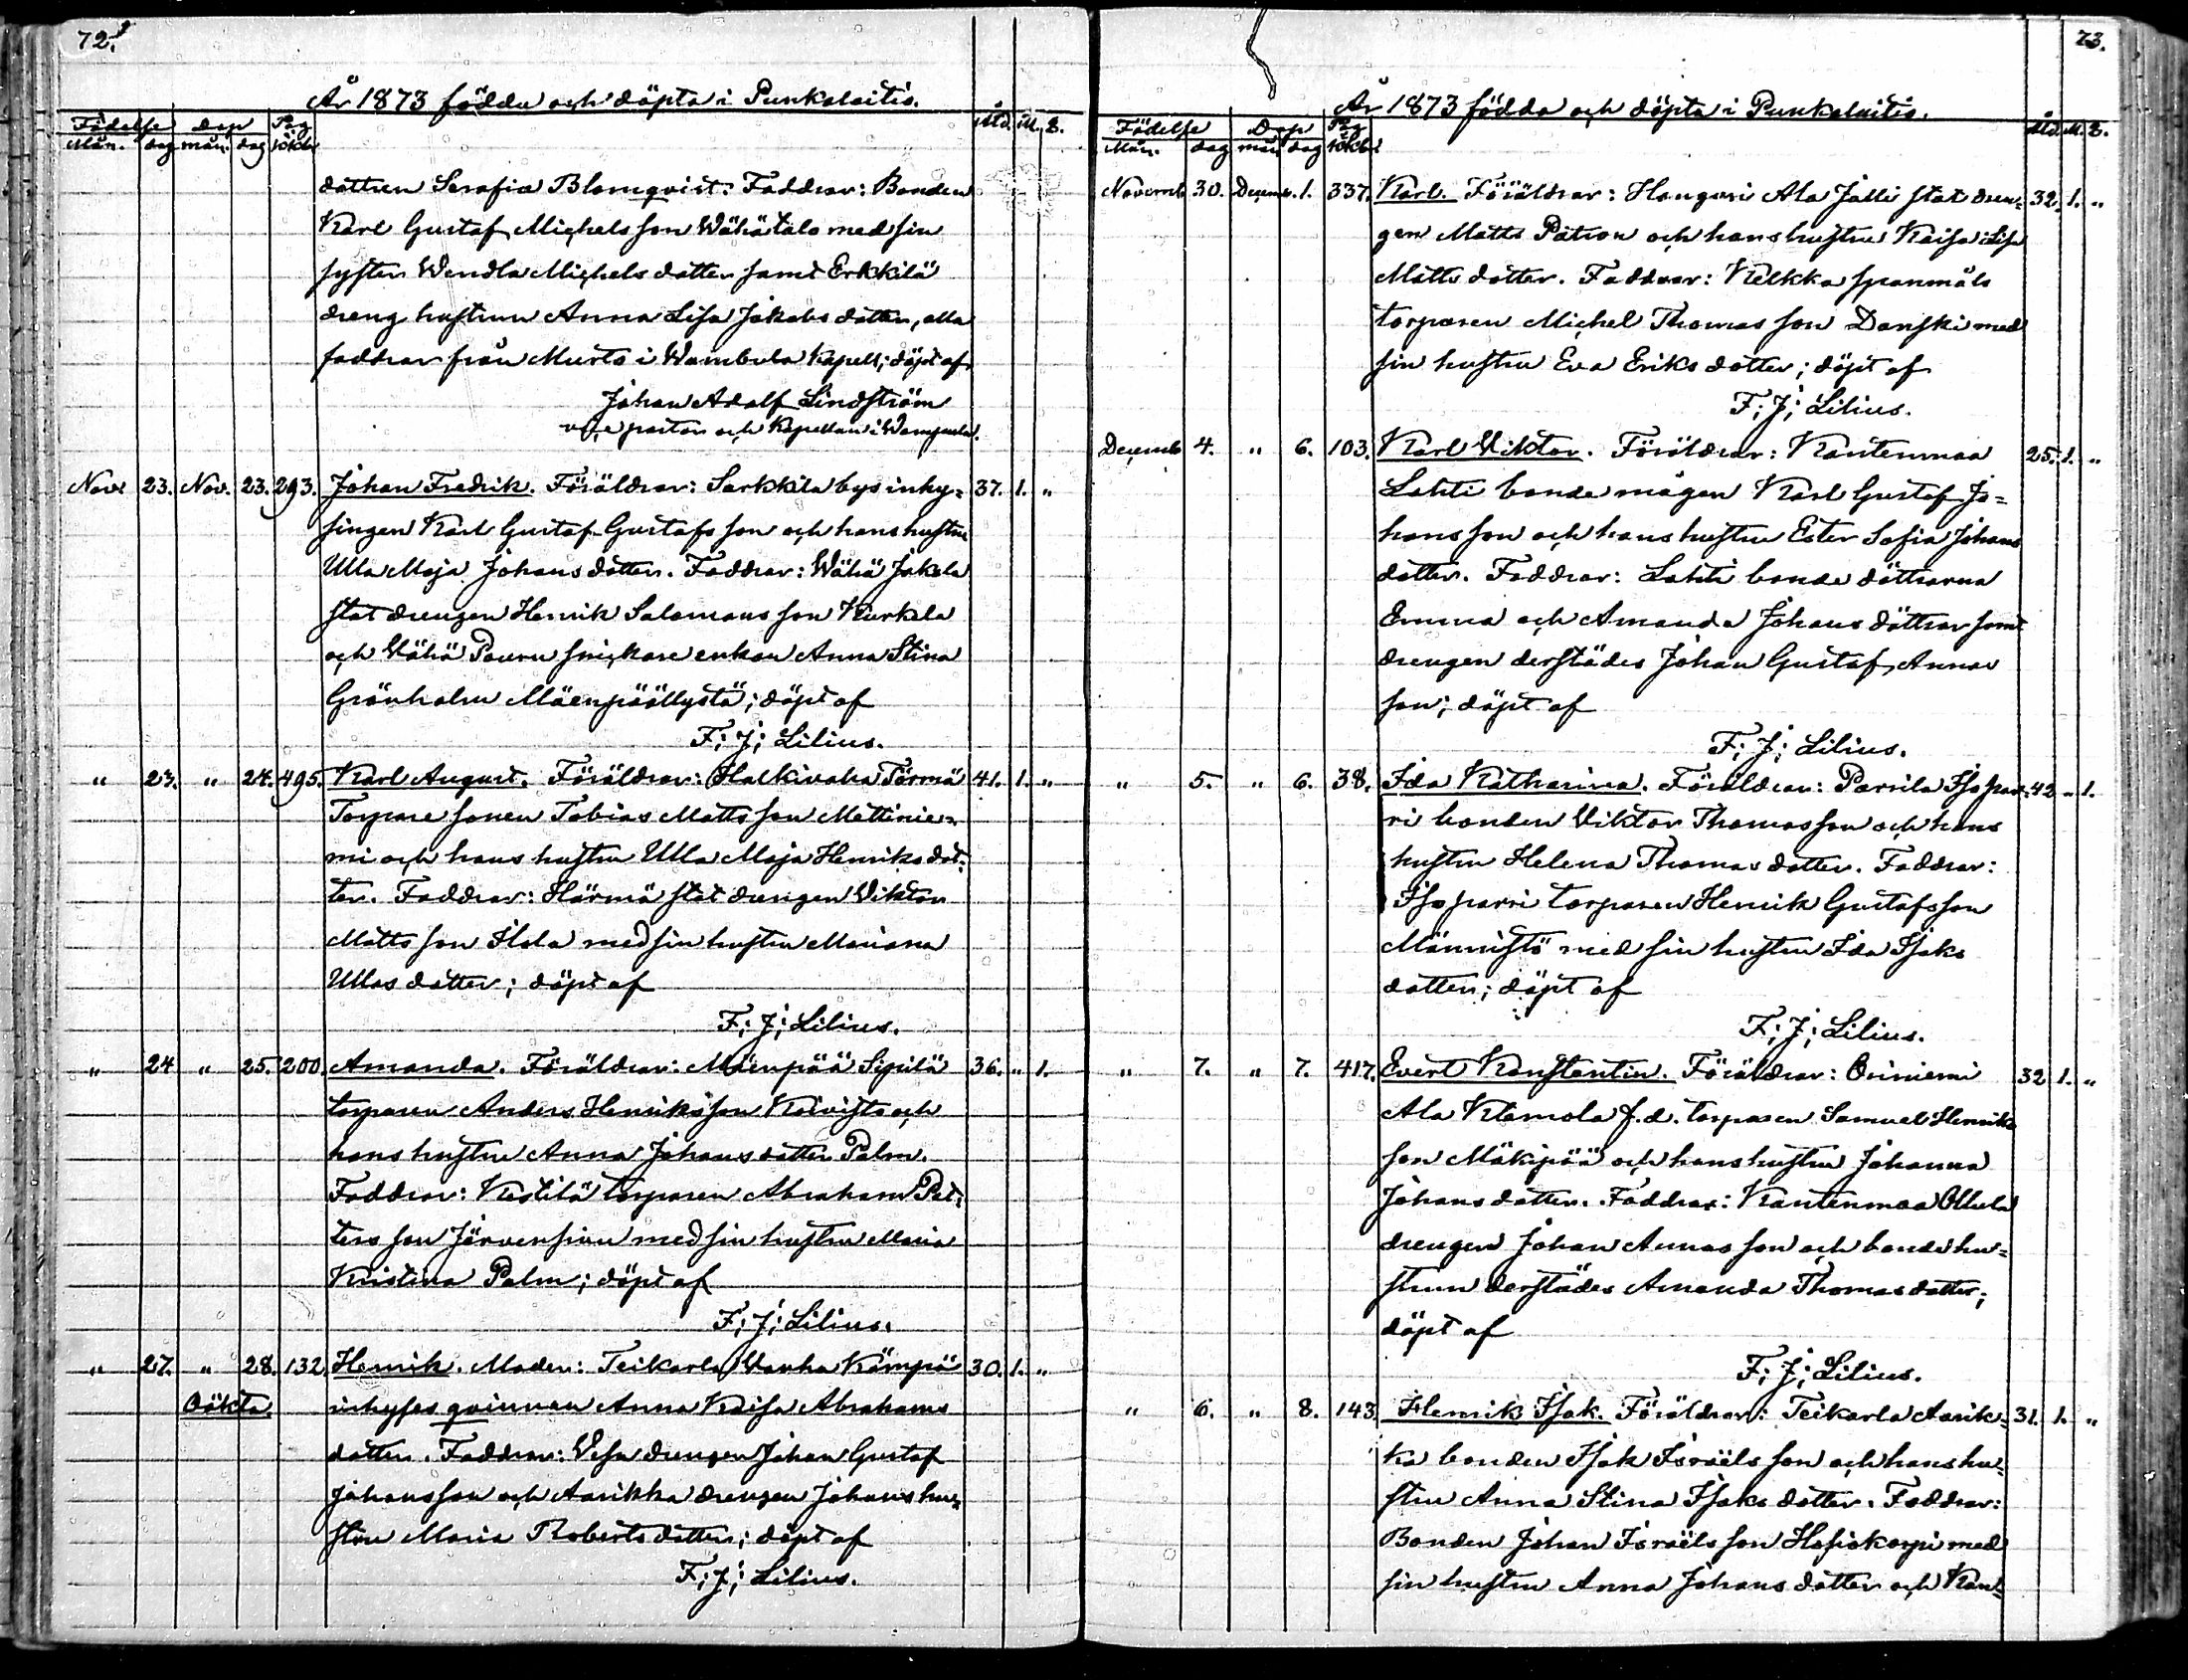 72.
År 1873 födda och döpta i Punkalaitio.
Födelse Dop Pag Åld. M. Q.
Mån. dag mån. dag
dottren Serafia Blomqvist. Faddrar: Bonden
Karl Gustaf Michelsson Wähätalo med sin
syster Wendla Michelsdotter samt Erkkilä
dreng hustrun Anna Lisa Jakobsdotter, alla
faddrar från Murto i Wambula Kapell; döpt af
Johan Adolf Lindström
vice pastor och Kapellan i Wampula.
Nov. 23. Nov. 23. 293. Johan Fredrik. Föräldrar: Sarkkila bys inhy= 37. 1. "
singen Karl Gustaf Gustafsson och hans hustru
Ulla Maja Johansdotter. Faddrar: Wähä Jakola
statdrengen Henrik Salomonsson Kurkela
och Vähä Pauru snickare enkan Anna Stina
Grönholm Mäenpäällystä; döpt af
F; J; Lilius.
" 23. " 24. 495. Karl August. Föräldrar: Halkivaha Törmä 41. 1. "
Torpare sonen Tobias Mattsson Mettinie=
mi och hans hustru Ulla Maja Henriksdot=
ter. Faddrar: Härmä statdrengen Viktor
Mattsson Ilola med sin hustru Mariana
Ullasdotter; döpt af
F; J; Lilius.
" 24 " 25. 200. Amanda. Föräldrar: Mäenpää Sipilä 36. " 1.
torparen Anders Henriksson Koivisto och
hans hustru Anna Johansdotter Palm.
Faddrar: Kestilä torparen Abraham Pet=
tersson Järvensivu med sin hustru Maria
Kristina Palm; döpt af
F; J; Lilius.
" 27. " 28. 132. Henrik. Moder: Teikarla Vanha Kämpä 30. 1. "
Oäkta. inhyses qvinnan Anna Kaisa Abrahams
dotter. Faddrar: Vesa drengen Johan Gustaf
Johansson och Aarikka drengen Johans hu=
stru Maria Robertsdotter; döpt af
F; J; Lilius.
73.
År 1873 födda och döpta i Punkalaitio.
Födelse Dop Pag Åld. M. Q.
Mån. dag mån dag
Novemb 30. Decemb. 1. 337. Karl. Föräldrar: Haugvri Ala Jalli statdren= 32. 1. "
gen Matts Patron och hans hustru Kaisa Lisa
Mattsdotter. Faddrar: Kelkka spanmåls
torparen Michel Thomasson Danski med
sin hustru Eva Eriksdotter; döpt af
F; J; Lilius.
Decemb 4. " 6. 103. Karl Viktor. Föräldrar: Kantenmaa 25. 1. "
Lahti bonde mågen Karl Gustaf Jo=
hansson och hans hustru Ester Sofia Johans
dotter. Faddrar: Lahti bonde döttrarna
Emma och Amanda Johansdöttrar samt
drengen derstädes Johan Gustaf Annas
son; döpt af
F; J; Lilius.
" 5. " 6. 38. Ida Katharina. Föräldrar: Parrila Isopar= 42 " 1.
ri bonden Viktor Thomasson och hans
hustru Helena Thomasdotter. Faddrar:
Isoparri torparen Henrik Gustafsson
Männistö med sin hustru Ida Isaks
dotter; döpt af
F; J; Lilius.
" 7. " 7. 417. Evert Konstantin. Föräldrar: Oriniemi 32 1. "
Ala Klemola f.d. torparen Samuel Henriks
son Mäkipää och hans hustru Johanna
Johansdotter. Faddrar: Kantenmaa Ollula
drengen Johan Annasson och bondehu=
strun derstädes Amanda Thomasdotter;
döpt af
F; J; Lilius.
" 6. " 8. 143. Henrik Isak. Föräldrar: Teikarla Aarik= 31. 1. "
ka bonden Isak Israëlsson och hans hu=
stru Anna Stina Isaksdotter. Faddrar:
Bonden Johan Israëlsson Hosiokorpi med
sin hustru Anna Johansdotter och Kan=